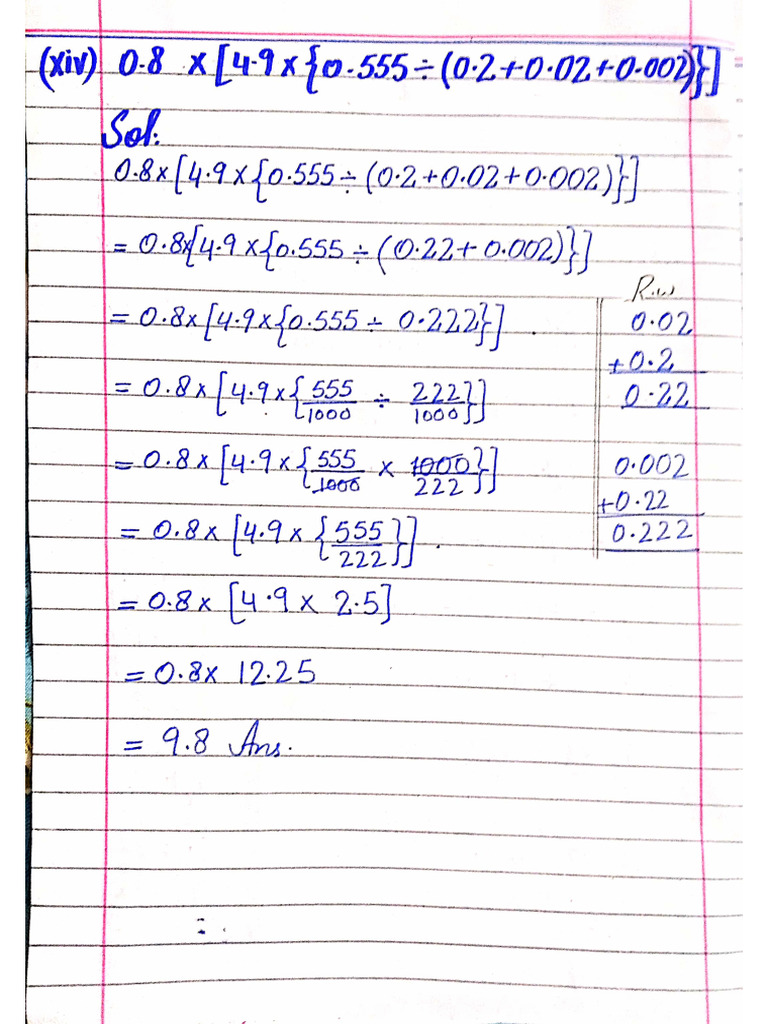 (xiv) 0.8 × [4.9 × {0.555 ÷ (0.2 + 0.02 + 0.002)}]
Sol:
0.8 × [4.9 × {0.555 ÷ (0.2 + 0.02 + 0.002)}]
= 0.8 × [4.9 × {0.555 ÷ (0.22 + 0.002)}]
= 0.8 × [4.9 × {0.555 ÷ 0.222}]
= 0.8 × [4.9 × {555/1000 ÷ 222/1000}]
= 0.8 × [4.9 × {555/1000 × 1000/222}]
= 0.8 × [4.9 × {555/222}].
= 0.8 × [4.9 × 2.5]
= 0.8 × 12.25
= 9.8 Ans.
R.w
0.02
+0.2
0.22
0.002
+0.22
0.222